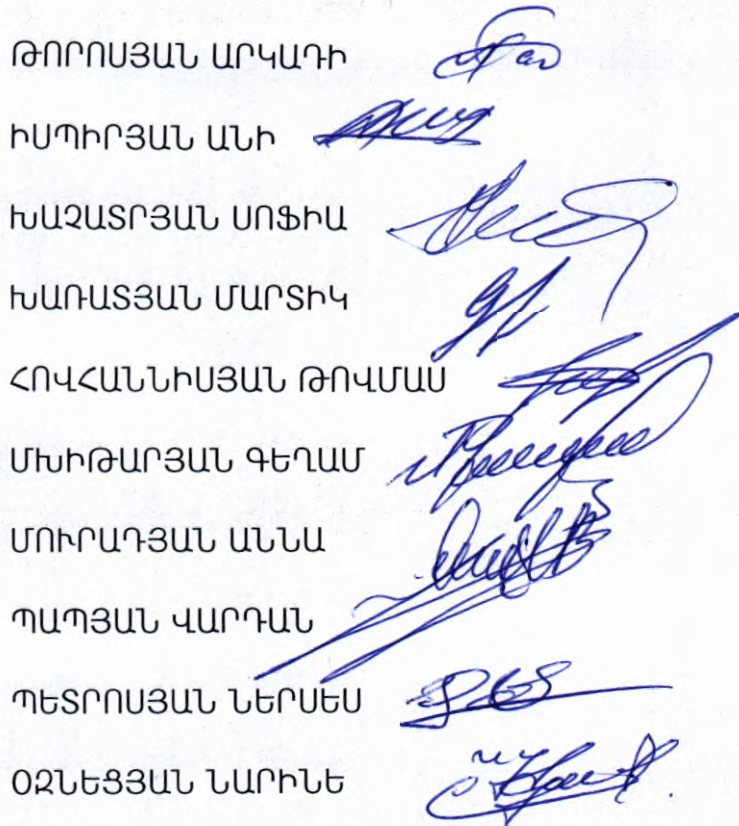 ԹՈՐՈՍՅԱՆ ԱՐԿԱԴԻ
ԻՍՊԻՐՅԱՆ ԱՆԻ
ԽԱՉԱՏՐՅԱՆ ՍՈՖԻԱ
ԽԱՌԱՏՅԱՆ ՄԱՐՏԻԿ
ՀՈՎՀԱՆՆԻՍՅԱՆ ԹՈՎՄԱՍ
ՄԽԻԹԱՐՅԱՆ ԳԵՂԱՄ
ՄՈՒՐԱԴՅԱՆ ԱՆՆԱ
ՊԱՊՅԱՆ ՎԱՐԴԱՆ
ՊԵՏՐՈՍՅԱՆ ՆԵՐՍԵՍ
ՕԶՆԵՑՅԱՆ ՆԱՐԻՆԵ